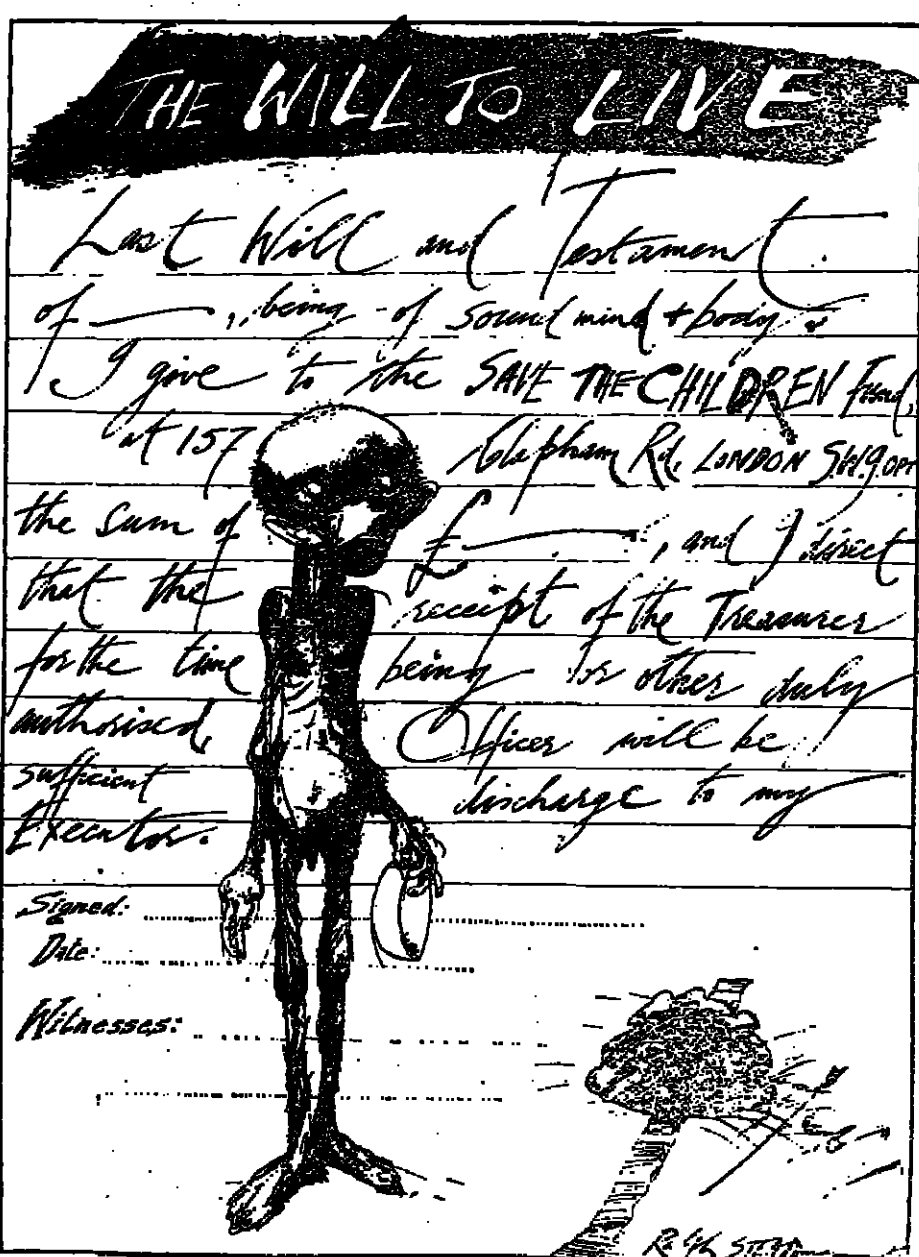 THE WILL TO LIVE
Last Will and Testament
of ——, being of sound mind + body
I give to the SAVE THE CHILDREN Fund,
at 157 Clapham Rd, LONDON S.W.9. OPT
the sum of £ ——, and I direct
that the receipt of the Treasurer
for the time being or other duly
authorised Officer will be
sufficient discharge to my
Executor.
Signed:
Date:
Witnesses: